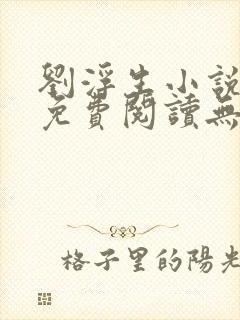 劉浮生小說
免費閱讀無
格子里的陽光